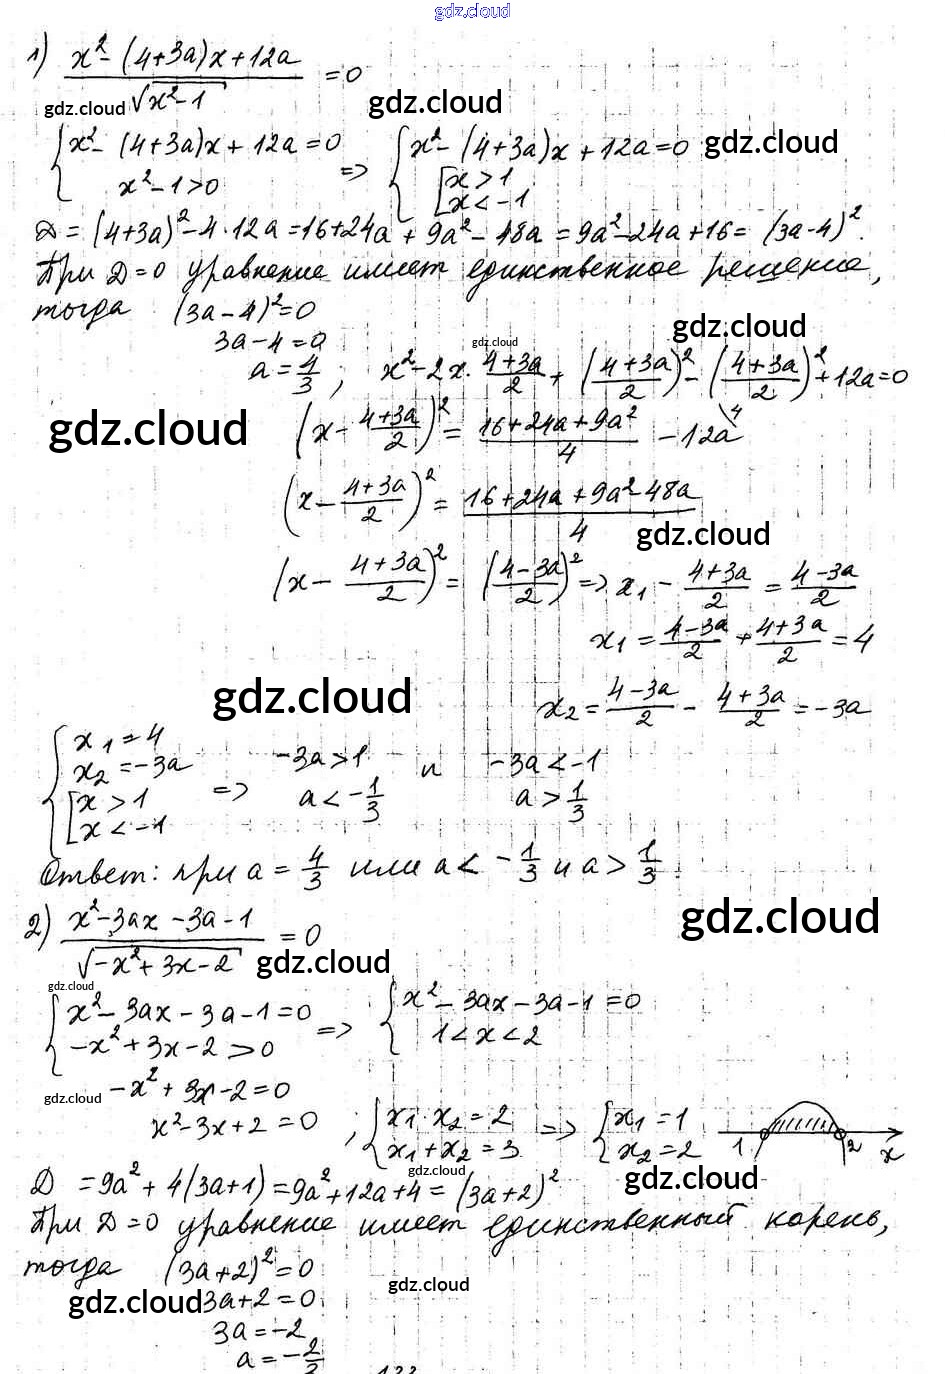 gdz.cloud
1) (x² - (4+3a)x + 12a) / √(x² - 1) = 0
gdz.cloud gdz.cloud
{ x² - (4+3a)x + 12a = 0 => { x² - (4+3a)x + 12a = 0 gdz.cloud
x² - 1 > 0 [ x > 1
[ x < -1
D = (4+3a)² - 4·12a = 16+24a + 9a² - 48a = 9a² - 24a + 16 = (3a-4)².
При D = 0 уравнение имеет единственное решение,
тогда (3a - 4)² = 0
gdz.cloud
3a - 4 = 0 gdz.cloud
a = 4/3 ; x² - 2x · (4+3a)/2 + ((4+3a)/2)² - ((4+3a)/2)² + 12a = 0
gdz.cloud (x - (4+3a)/2)² = (16+24a+9a²)/4 - 12a\4
(x - (4+3a)/2)² = (16+24a+9a²-48a)/4
gdz.cloud
(x - (4+3a)/2)² = ((4-3a)/2)² => x₁ - (4+3a)/2 = (4-3a)/2
x₁ = (4-3a)/2 + (4+3a)/2 = 4
gdz.cloud x₂ = (4-3a)/2 - (4+3a)/2 = -3a
{ x₁ = 4
x₂ = -3a => -3a > 1 и -3a < -1
[ x > 1 a < -1/3 a > 1/3
[ x < -1
Ответ: при a = 4/3 или a < -1/3 и a > 1/3.
gdz.cloud
2) (x² - 3ax - 3a - 1) / √(-x² + 3x - 2) = 0
gdz.cloud
gdz.cloud
{ x² - 3ax - 3a - 1 = 0 => { x² - 3ax - 3a - 1 = 0
-x² + 3x - 2 > 0 1 < x < 2
gdz.cloud -x² + 3x - 2 = 0
x² - 3x + 2 = 0 ; { x₁ · x₂ = 2 => { x₁ = 1
x₁ + x₂ = 3 x₂ = 2
1 2 x
gdz.cloud gdz.cloud
D = 9a² + 4(3a+1) = 9a² + 12a + 4 = (3a+2)²
При D = 0 уравнение имеет единственный корень,
тогда (3a+2)² = 0
gdz.cloud
gdz.cloud 3a + 2 = 0
3a = -2
a = -2/3